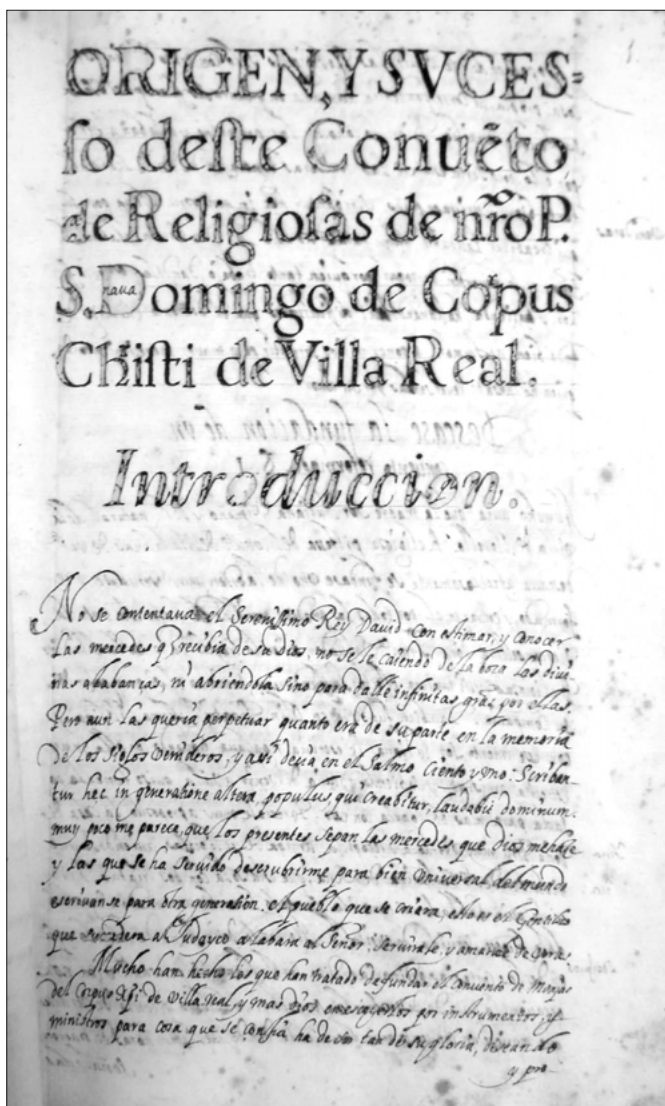 ORIGEN, Y SVCES=
so deste Conuẽto
de Religiosas de nr̃o P.
S. Domingo de Copus
nava
Chisti de Villa Real.
Introduccion.
No se contentava el Serenissimo Rey David con estimar, y conocer
las mercedes q̃ recibia de su Dios, no se le caiendo de la boca las divi-
nas alabanças, ni abriendola sino para dalle infinitas graz por ellas.
Pero aun las queria perpetuar quanto era de su parte en la memoria
de los siglos venideros, y asi decia en el Salmo ciento y uno: Scriban-
tur hec in generatione altera, populus, qui creabitur, laudabit dominum.
muy poco me parece, que los presentes sepan las mercedes que Dios me hace
y las que se ha servido descubrirme para bien universal del mundo
escrivanse para otra generacion. el pueblo que se criara, esto es el Gentilico
que sucedera al Judayco alabara al Señor, servirale, y amarale de veras
Mucho han hecho los que han tratado de fundar el Convento de Monjas
del Corpus Xpi de Villa real, y mas Dios en escogerlos por instrumentos, y
ministros para cosa que se confia ha de ser tan de su gloria, deseando
y pro